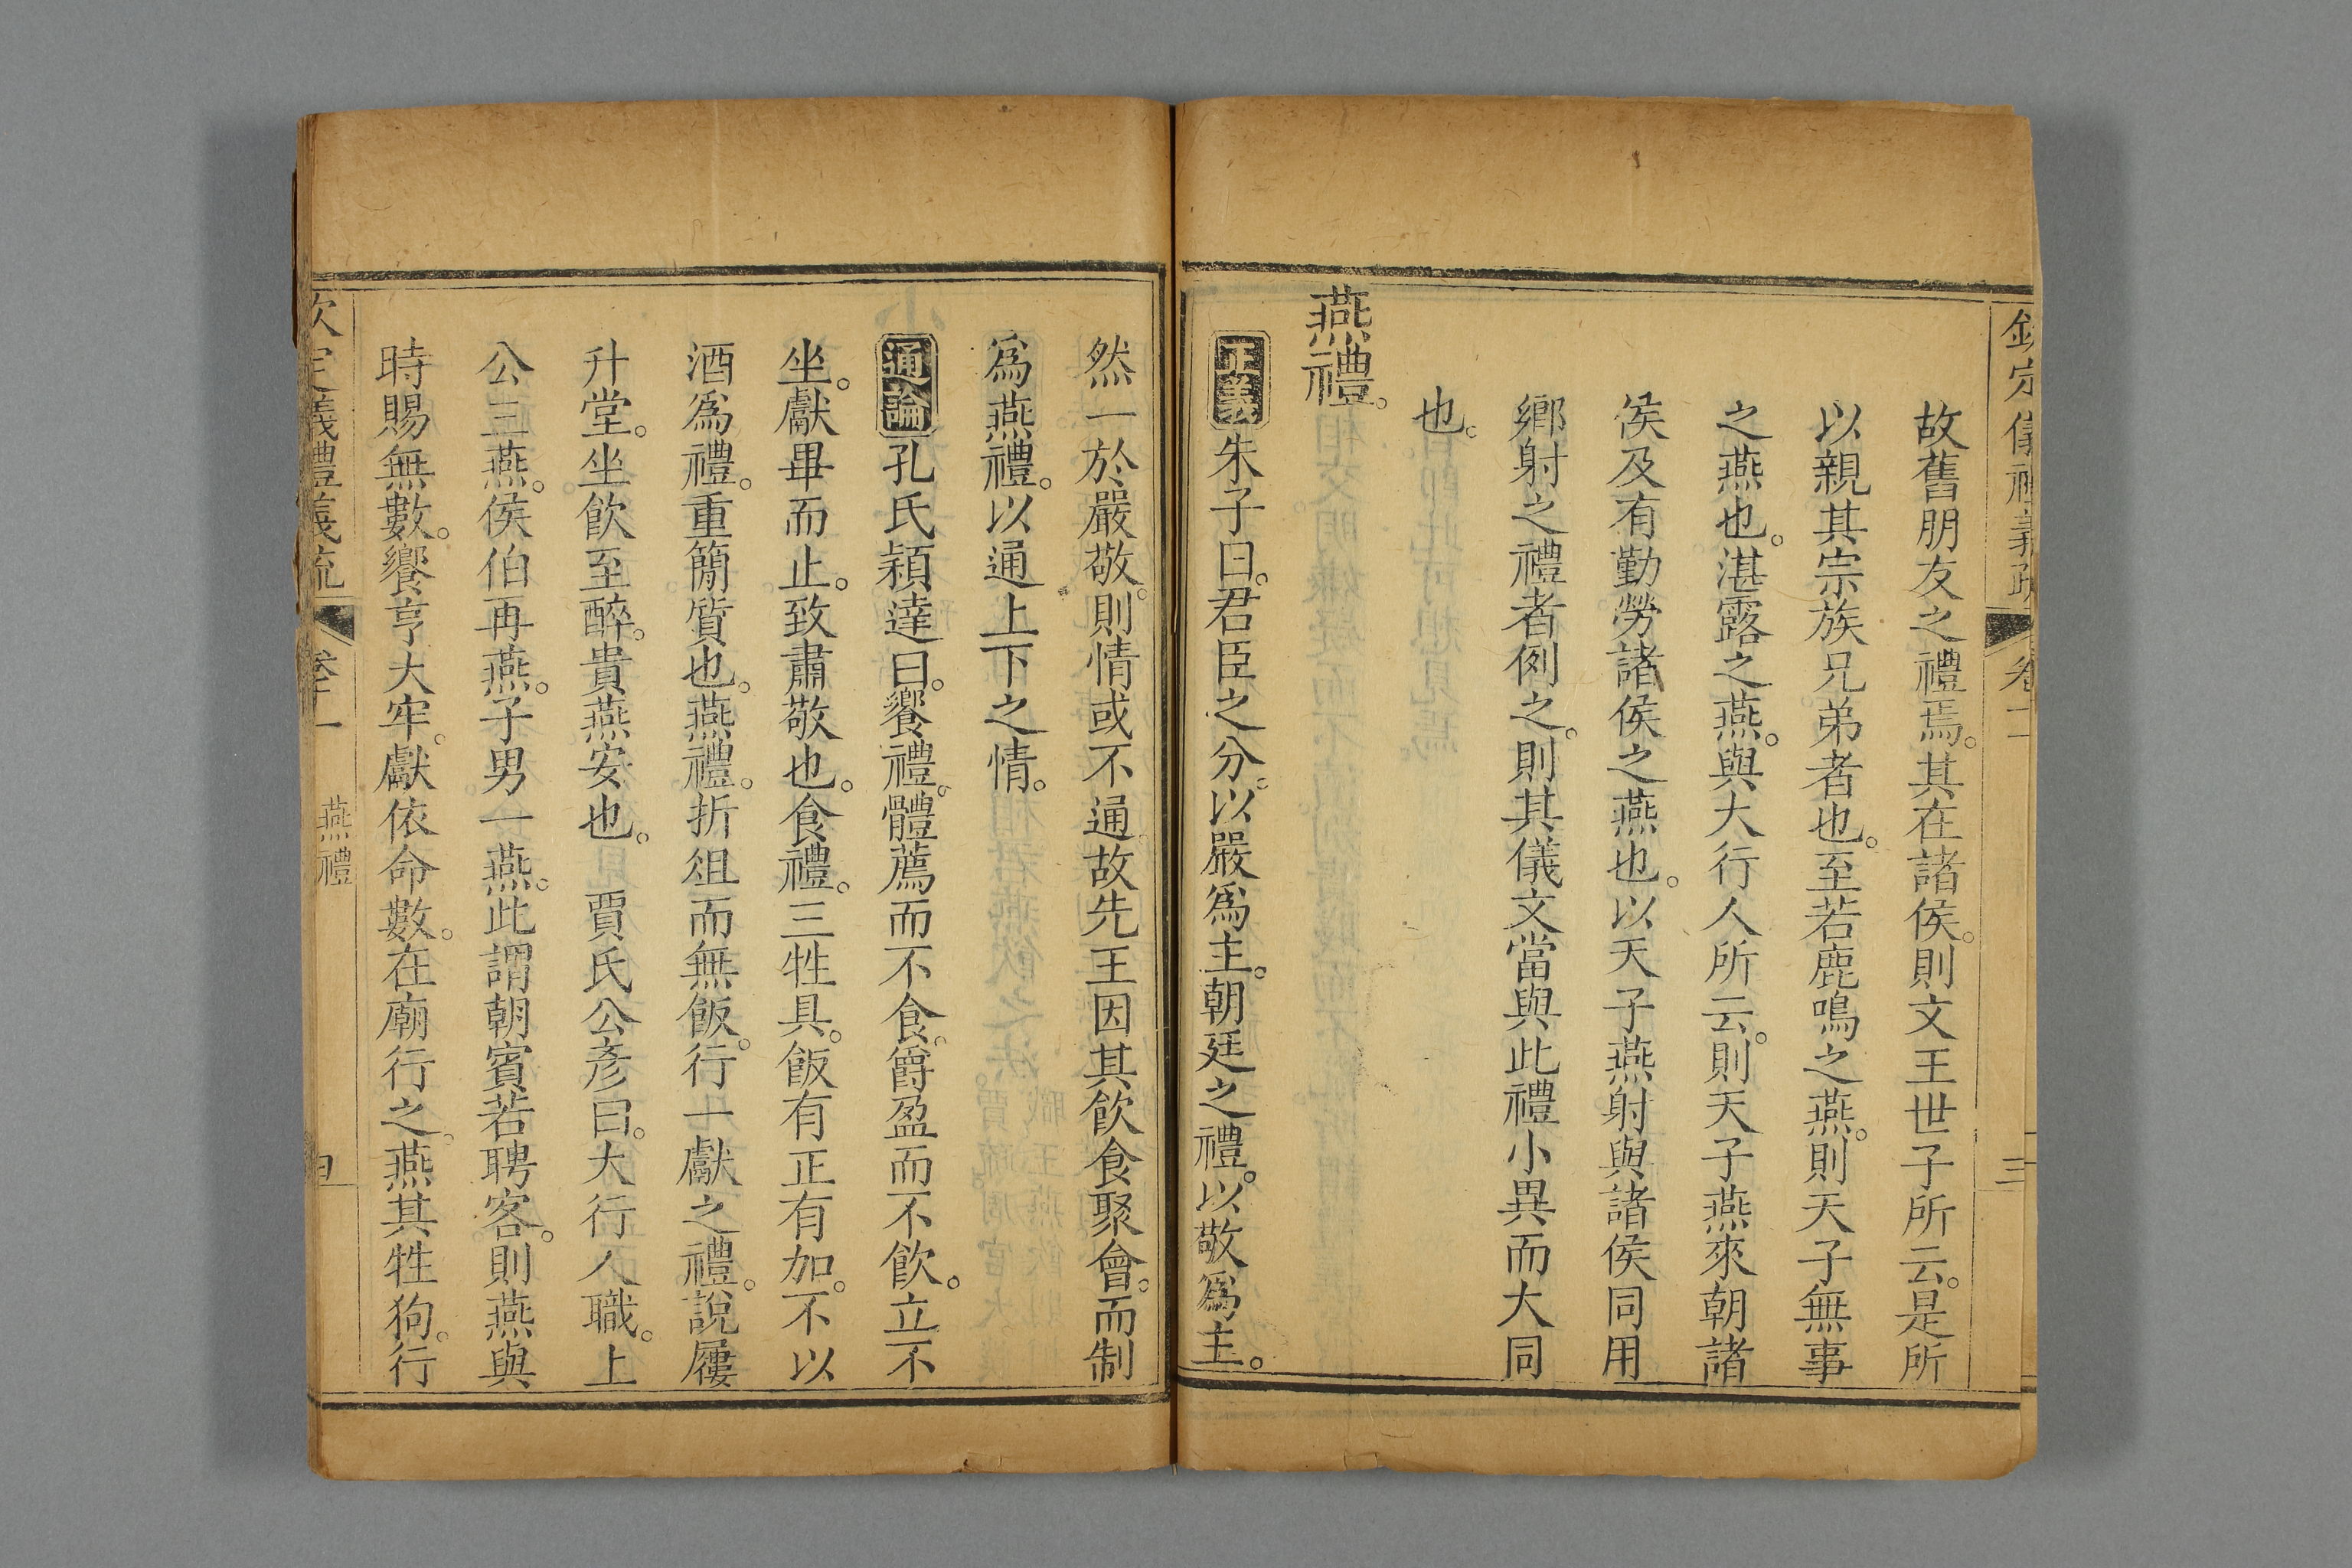 欽定儀禮義疏 卷十一 三
故舊朋友之禮焉。其在諸侯。則文王世子所云。是所
以親其宗族兄弟者也。至若鹿鳴之燕。則天子無事
之燕也。湛露之燕。與大行人所云。則天子燕來朝諸
侯及有勤勞諸侯之燕也。以天子燕射與諸侯同用
鄉射之禮者例之。則其儀文當與此禮小異而大同
也。
燕禮。
正義朱子曰。君臣之分。以嚴爲主。朝廷之禮。以敬爲主。
然一於嚴敬。則情或不通。故先王因其飲食聚會。而制
爲燕禮。以通上下之情。
通論孔氏穎達曰。饗禮。體薦而不食。爵盈而不飲。立不
坐。獻畢而止。致肅敬也。食禮。三牲具。飯有正有加。不以
酒爲禮。重簡質也。燕禮。折俎而無飯。行一獻之禮。說屨
升堂。坐飲至醉。貴燕安也。 賈氏公彥曰。大行人職。上
公三燕。侯伯再燕。子男一燕。此謂朝賓若聘客。則燕與
時賜無數。饗亨大牢。獻依命數。在廟行之。燕其牲狗。行
欽定儀禮義疏 卷十一 燕禮